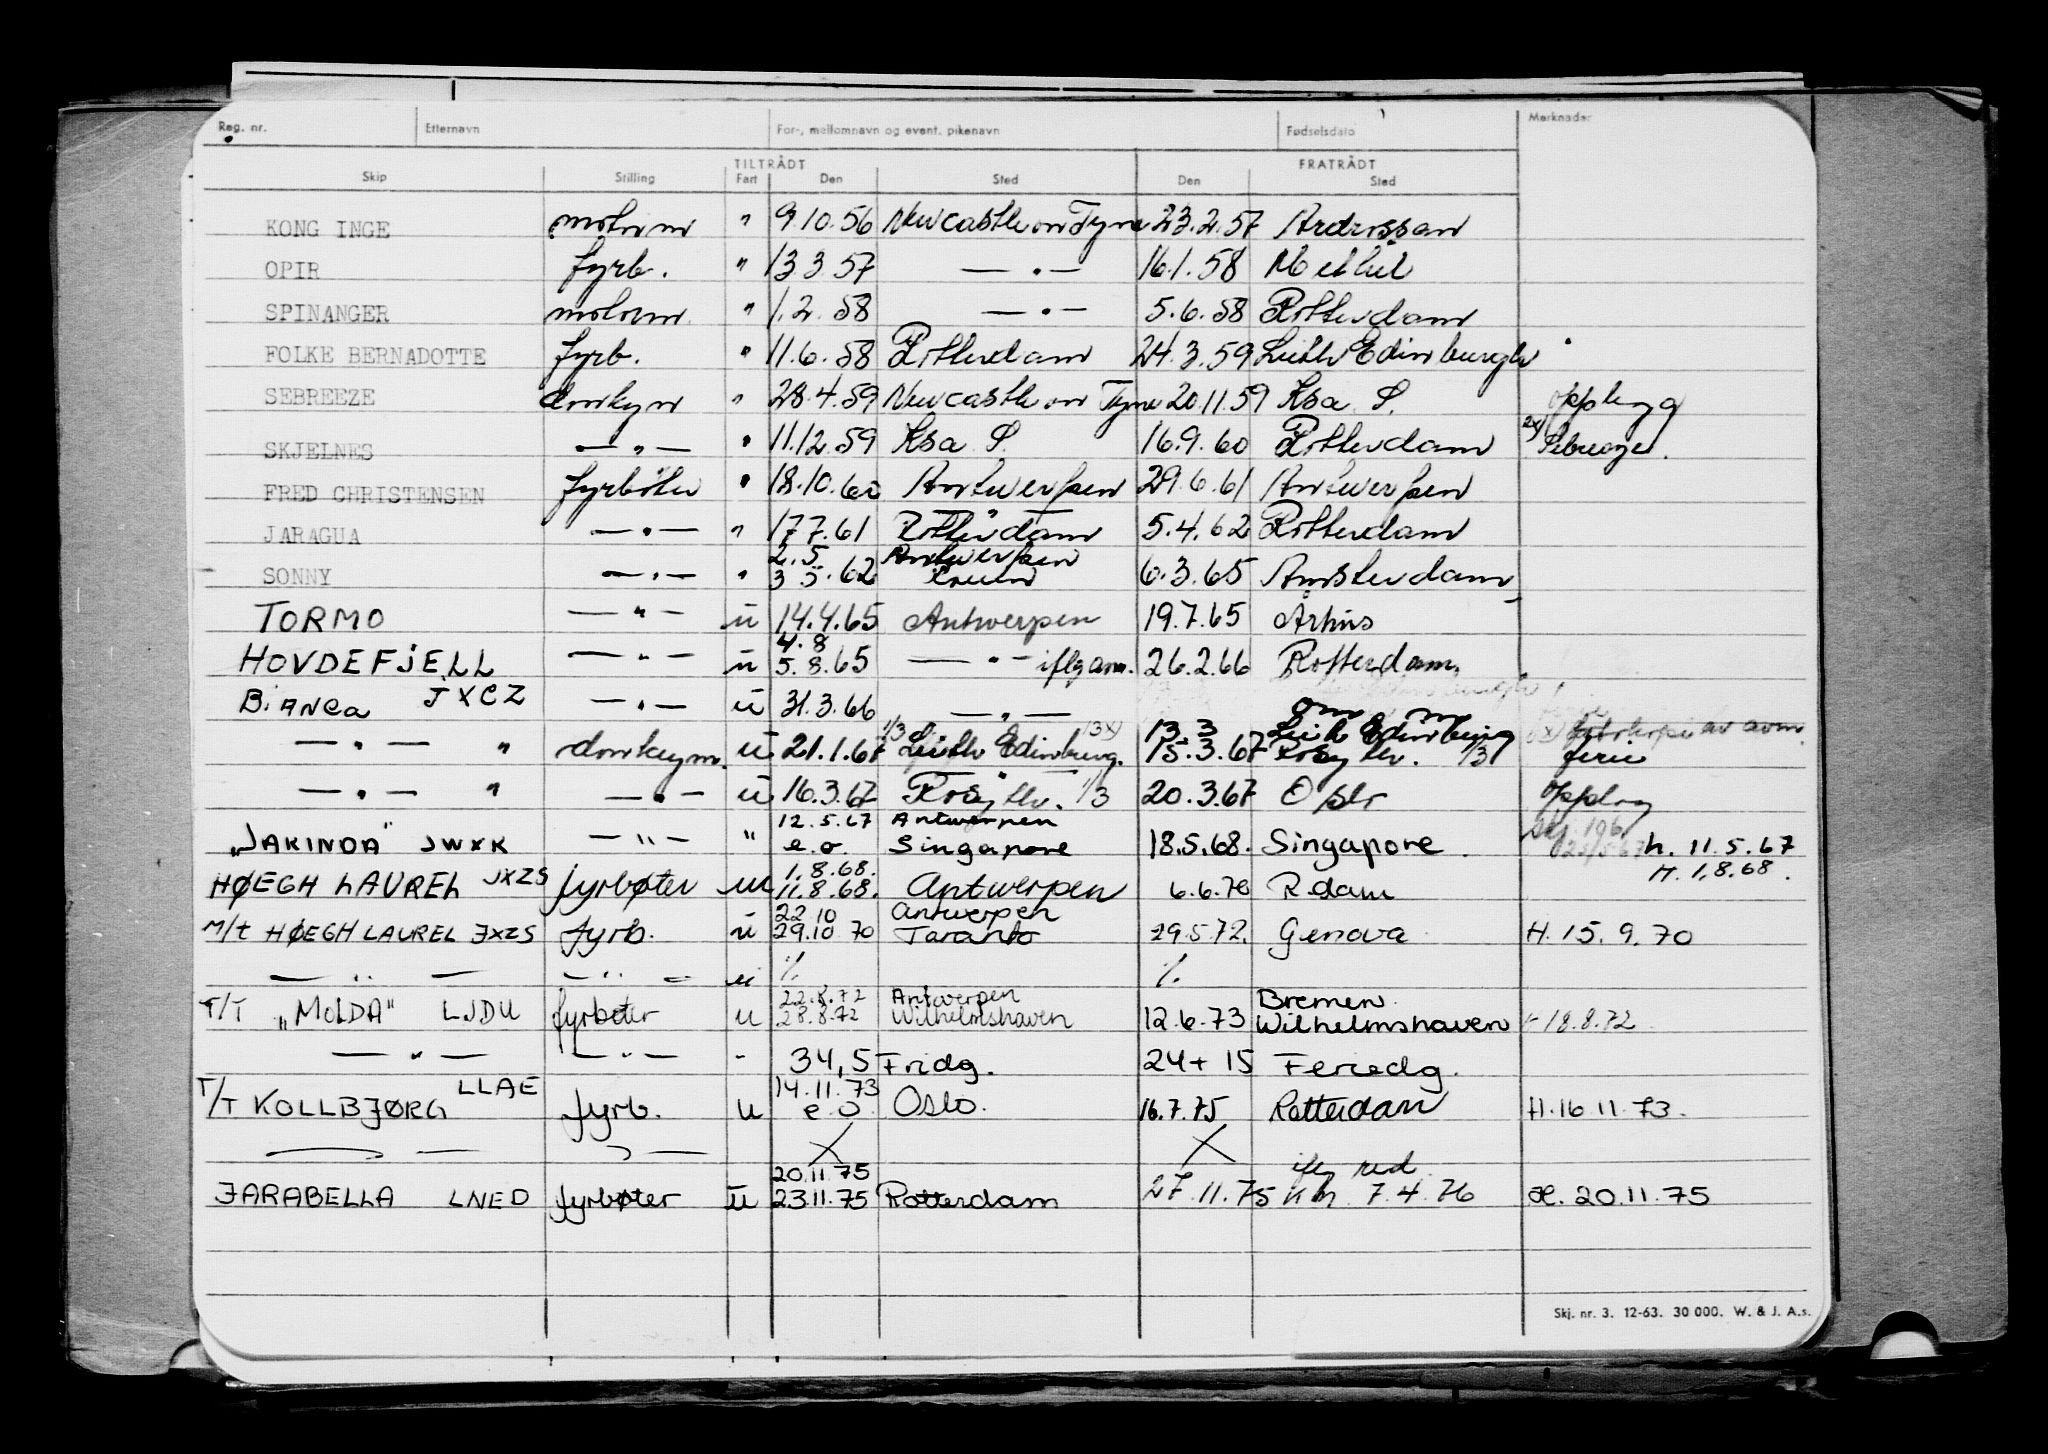 Reg. nr. Etternavn For-, mellomnavn og event. pikenavn Fødselsdato Merknader
TILTRÅDT FRATRÅDT
Skip Stilling Fart Den Sted Den Sted
KONG INGE motorm " 9.10.56 Newcastle on Tyne 23.2.57 Ardrossan
OPIR fyrb. " 13 3 57 — " — 16.1.58 Methil
SPINANGER motorm " 1.2.58 — " — 5.6.58 Rotterdam
FOLKE BERNADOTTE fyrb. " 11.6.58 Rotterdam 24.3.59 Leith Edinburgh
SEBREEZE donkym " 28.4.59 Newcastle on Tyne 20.11.59 Ksa S. opplegg
SKJELNES — " — " 11.12.59 Ksa S. 16.9.60 Rotterdam ex) Sebreeze.
FRED CHRISTENSEN fyrbøter " 18.10.60 Antwerpen 29.6.61 Antwerpen
JARAGUA — " — " 17 7.61 Rotterdam 5.4.62 Rotterdam
2.5 Antwerpen
SONNY — " — " 3 5.62 6.3.65 Amsterdam
TORMO — " — u 14.4.65 Antwerpen 19.7.65 Århus
4.8
HOVDEFJELL — " — u 5.8.65 — " — iflg am. 26.2.66 Rotterdam.
BiANCa JXCZ — " — u 31.3.66 — " —
13.3 Leith Edinburg
— " — " donkeym. u 21.1.67 1/3 Leith Edinburg. 13x) 15.3.67 Rosyth. 1/3 ferie
— " — " — " — u 16.3.67 Rosyth. 1/3 20.3.67 Oslo opplag
12.5.67 Antwerpen
"JAKINDA" JWXK — " — " e.o. Singapore 18.5.68. Singapore. h. 11.5.67
1.8.68. H. 1.8.68.
HØEGH LAUREL JXZS fyrbøter u 11.8.68. Antwerpen 6.6.70 R.dam
22 10 Antwerpen
M/t HØEGH LAUREL JXZS fyrb. u 29.10 70 Taranto 29.5.72. Genova H. 15.9.70
— " — — " — u ./. ./.
22.8.72 Antwerpen Bremen
T/T "MOLDA" LJDU fyrbøter u 28.8.72 Wilhelmshaven 12.6.73 Wilhelmshaven 18.8.72
— " — — " — - 34,5 Fridg. 24+15 Feriedg.
LLAE 14.11.73
T/T KOLLBJØRG fyrb. u e o. Oslo. 16.7.75 Rotterdam H. 16 11.73.
X X
20.11.75 iflg red
JARABELLA LNED fyrbøter u 23.11.75 Rotterdam 27.11.75 7.4.76 H. 20.11.75
Skj. nr. 3. 12-63. 30 000. W. & J. A.s.